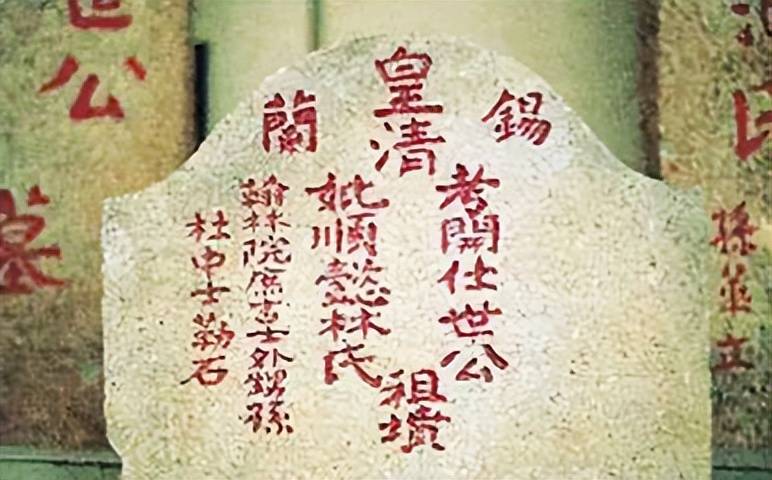 錫蘭
皇清
考開仕世公
妣順懿林氏
祖墳
翰林院庶吉士外甥孫
杜中士勒石
世公
墓
氏
孫並立